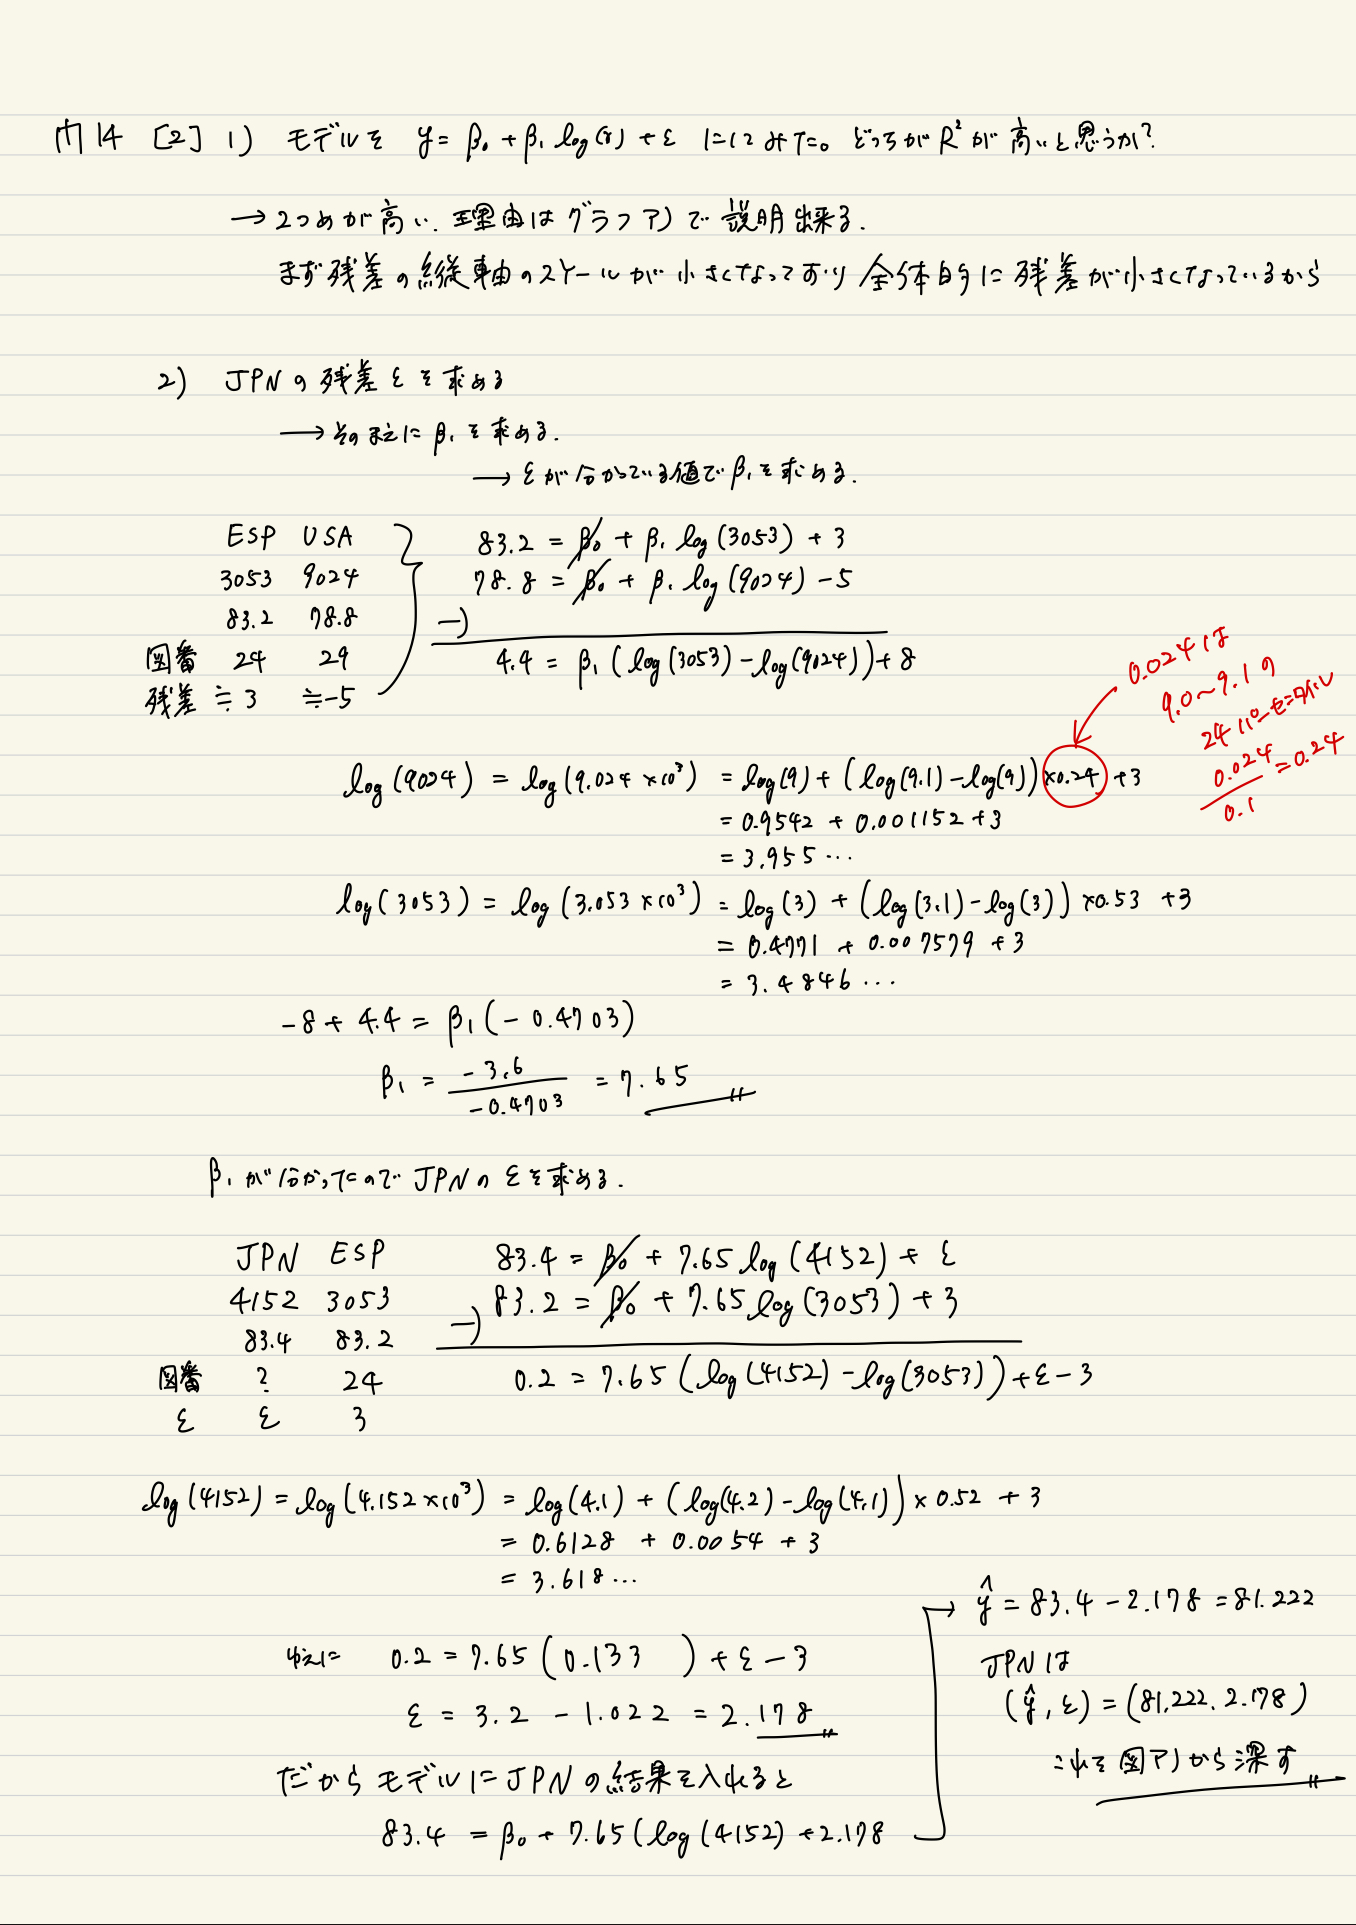 問14 [2] 1) モデルを y = β₀ + β₁ log(x) + ε にしてみた。どっちがR²が高いと思うか?
→ 2つめが高い. 理由はグラフア)で説明出来る.
まず残差の縦軸のスケールが小さくなっており全体的に残差が小さくなっているから
2) JPNの残差εを求める
→ そのまえにβ₁を求める.
→ εが分かっている値でβ₁を求める.
ESP USA
3053 9024
83.2 78.8
図番 24 29
残差 ≒3 ≒-5
83.2 = β₀ + β₁ log(3053) + 3
78.8 = β₀ + β₁ log(9024) - 5
-)
4.4 = β₁ (log(3053) - log(9024)) + 8
0.024は
9.0~9.1の
24パーセンタイル
0.024/0.1 = 0.24
log(9024) = log(9.024×10³) = log(9) + (log(9.1) - log(9))×0.24 + 3
= 0.9542 + 0.001152 + 3
= 3.955...
log(3053) = log(3.053×10³) = log(3) + (log(3.1) - log(3))×0.53 + 3
= 0.4771 + 0.007579 + 3
= 3.4846...
-8 + 4.4 = β₁(-0.4703)
β₁ = -3.6/-0.4703 = 7.65
β₁が分かったのでJPNのεを求める.
JPN ESP
4152 3053
83.4 83.2
図番 ? 24
ε ε 3
83.4 = β₀ + 7.65 log(4152) + ε
83.2 = β₀ + 7.65 log(3053) + 3
-)
0.2 = 7.65 (log(4152) - log(3053)) + ε - 3
log(4152) = log(4.152×10³) = log(4.1) + (log(4.2) - log(4.1)) × 0.52 + 3
= 0.6128 + 0.0054 + 3
= 3.618...
ゆえに 0.2 = 7.65 (0.133 ) + ε - 3
ε = 3.2 - 1.022 = 2.178
だからモデルにJPNの結果を入れると
83.4 = β₀ + 7.65(log(4152) + 2.178
→ ŷ = 83.4 - 2.178 = 81.222
JPNは
(ŷ, ε) = (81.222, 2.178)
これを図ア)から深す